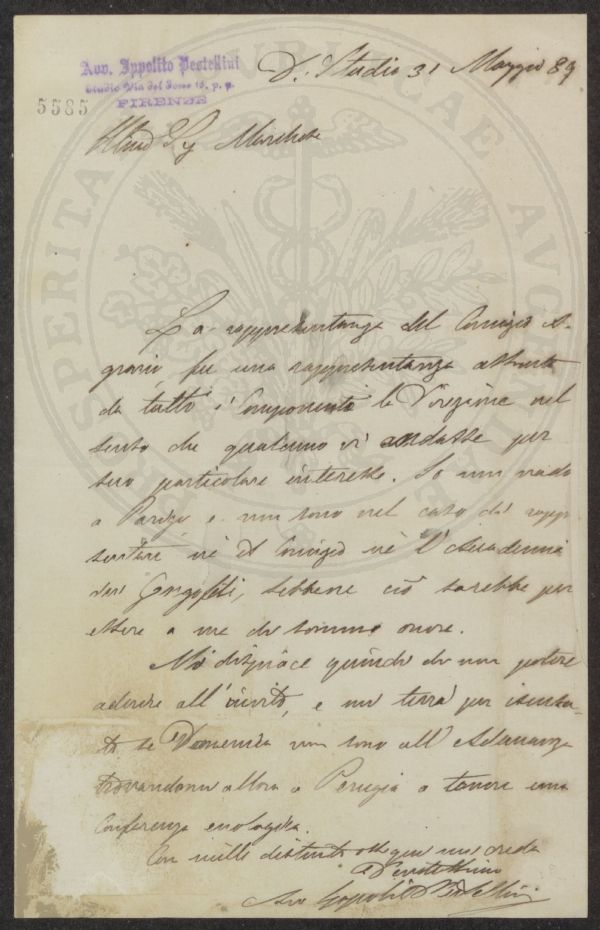 Avv. Ippolito Pestellini
Studio Via del Corso 13. p. p.
FIRENZE
5585
D. Studio 31 Maggio 89
Illmo Sig Marchese
La rappresentanza del Comizio A-
grario, fu una rappresentanza
da tutti i Componenti la Direzione nel
senso che qualcuno vi andasse per
suo particolare interesse. Io non vado
a Parigi e non sono nel caso di rappre
sentare nè il Comizio nè l'Accademia
dei Georgofili, sebbene ciò sarebbe per
essere a me di sommo onore.
Mi dispiace quindi di non potere
aderire all'invito, e mi terrà per iscusa-
to se Domenica non sono all'Adunanza
trovandomi allora a Perugia a tenere una
Conferenza enologica.
Con mille distinti ossequi mi creda
Devotissimo
Avv Ippolito Pestellini
PROSPERITATI PVBLICAE AVGENDAE